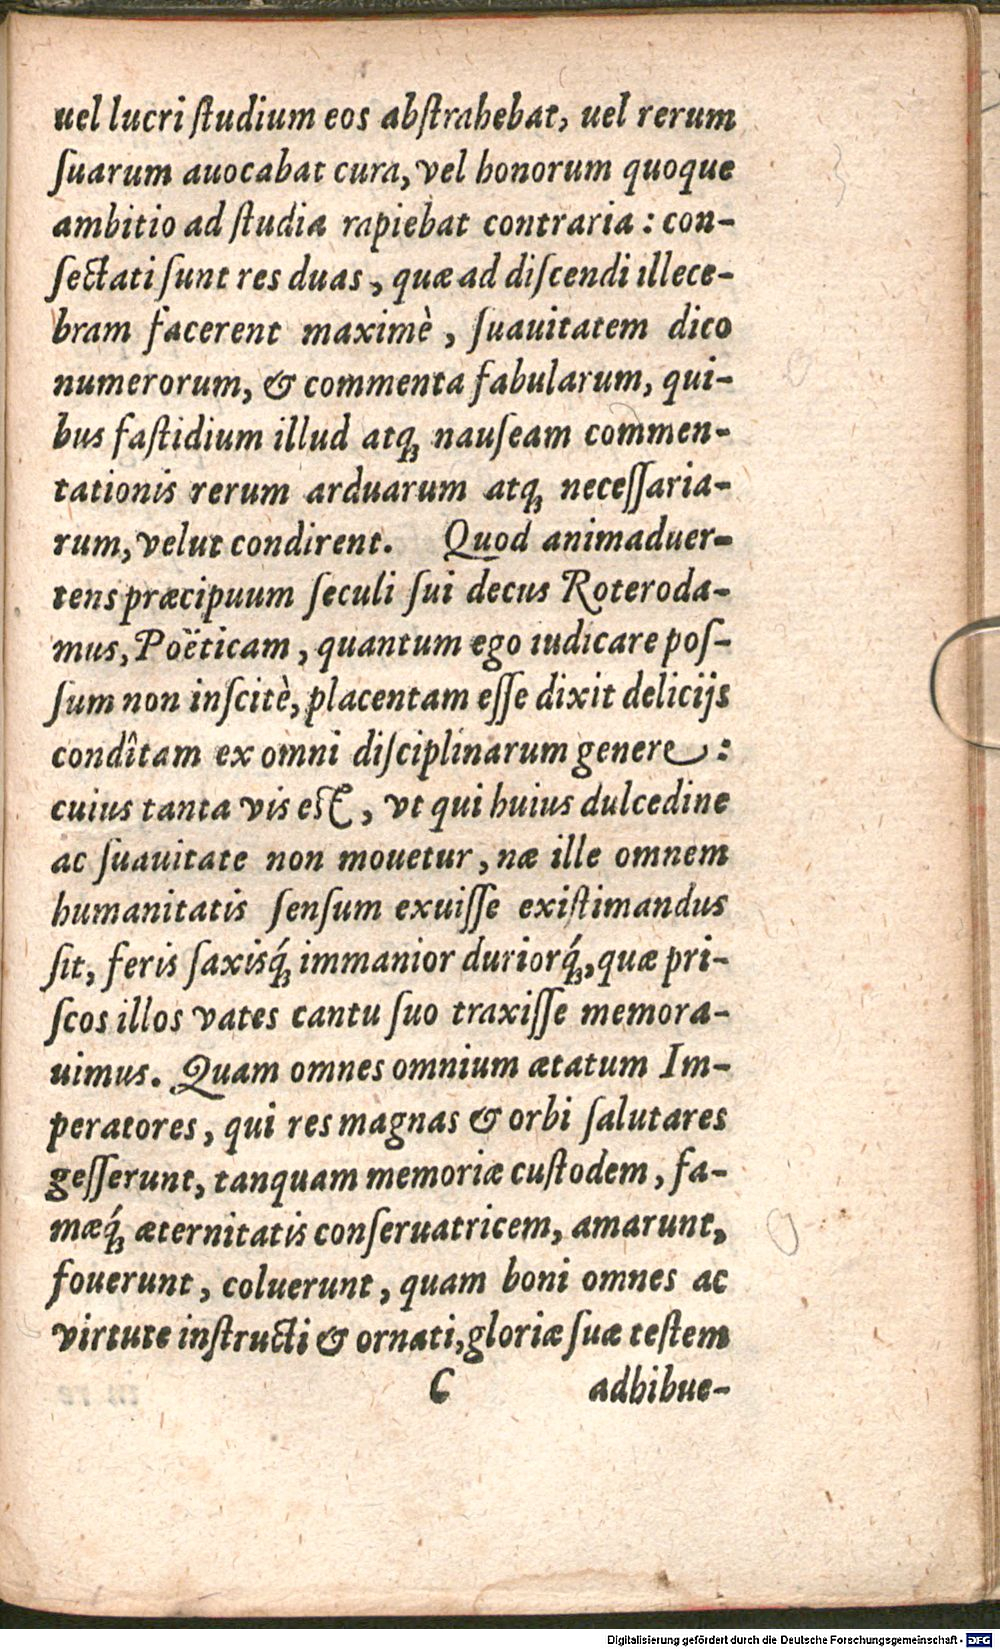 uel lucri ſtudium eos abſtrahebat, uel rerum
ſuarum auocabat cura, vel honorum quoque
ambitio ad ſtudia rapiebat contraria: con-
ſectati ſunt res duas, quæ ad diſcendi illece-
bram facerent maximè, ſuauitatem dico
numerorum, & commenta fabularum, qui-
bus faſtidium illud atq́ꝫ nauſeam commen-
tationis rerum arduarum atqꝫ neceſſaria-
rum, velut condirent. Quod animaduer-
tens præcipuum ſeculi ſui decus Roteroda-
mus, Poëticam, quantum ego iudicare poſ-
ſum non inſcitè, placentam eſſe dixit delicijs
condîtam ex omni diſciplinarum genere:
cuius tanta vis eſt, vt qui huius dulcedine
ac ſuauitate non mouetur, næ ille omnem
humanitatis ſenſum exuiſſe exiſtimandus
ſit, feris ſaxisq́ꝫ immanior duriorq́ꝫ, quæ pri-
ſcos illos vates cantu ſuo traxiſſe memora-
uimus. Quam omnes omnium ætatum Im-
peratores, qui res magnas & orbi ſalutares
geſſerunt, tanquam memoriæ cuſtodem, fa-
mæq́ꝫ æternitatis conſeruatricem, amarunt,
fouerunt, coluerunt, quam boni omnes ac
virtute inſtructi & ornati, gloriæ ſuæ teſtem
C adhibue-
Digitalisierung gefördert durch die Deutsche Forschungsgemeinschaft - DFG